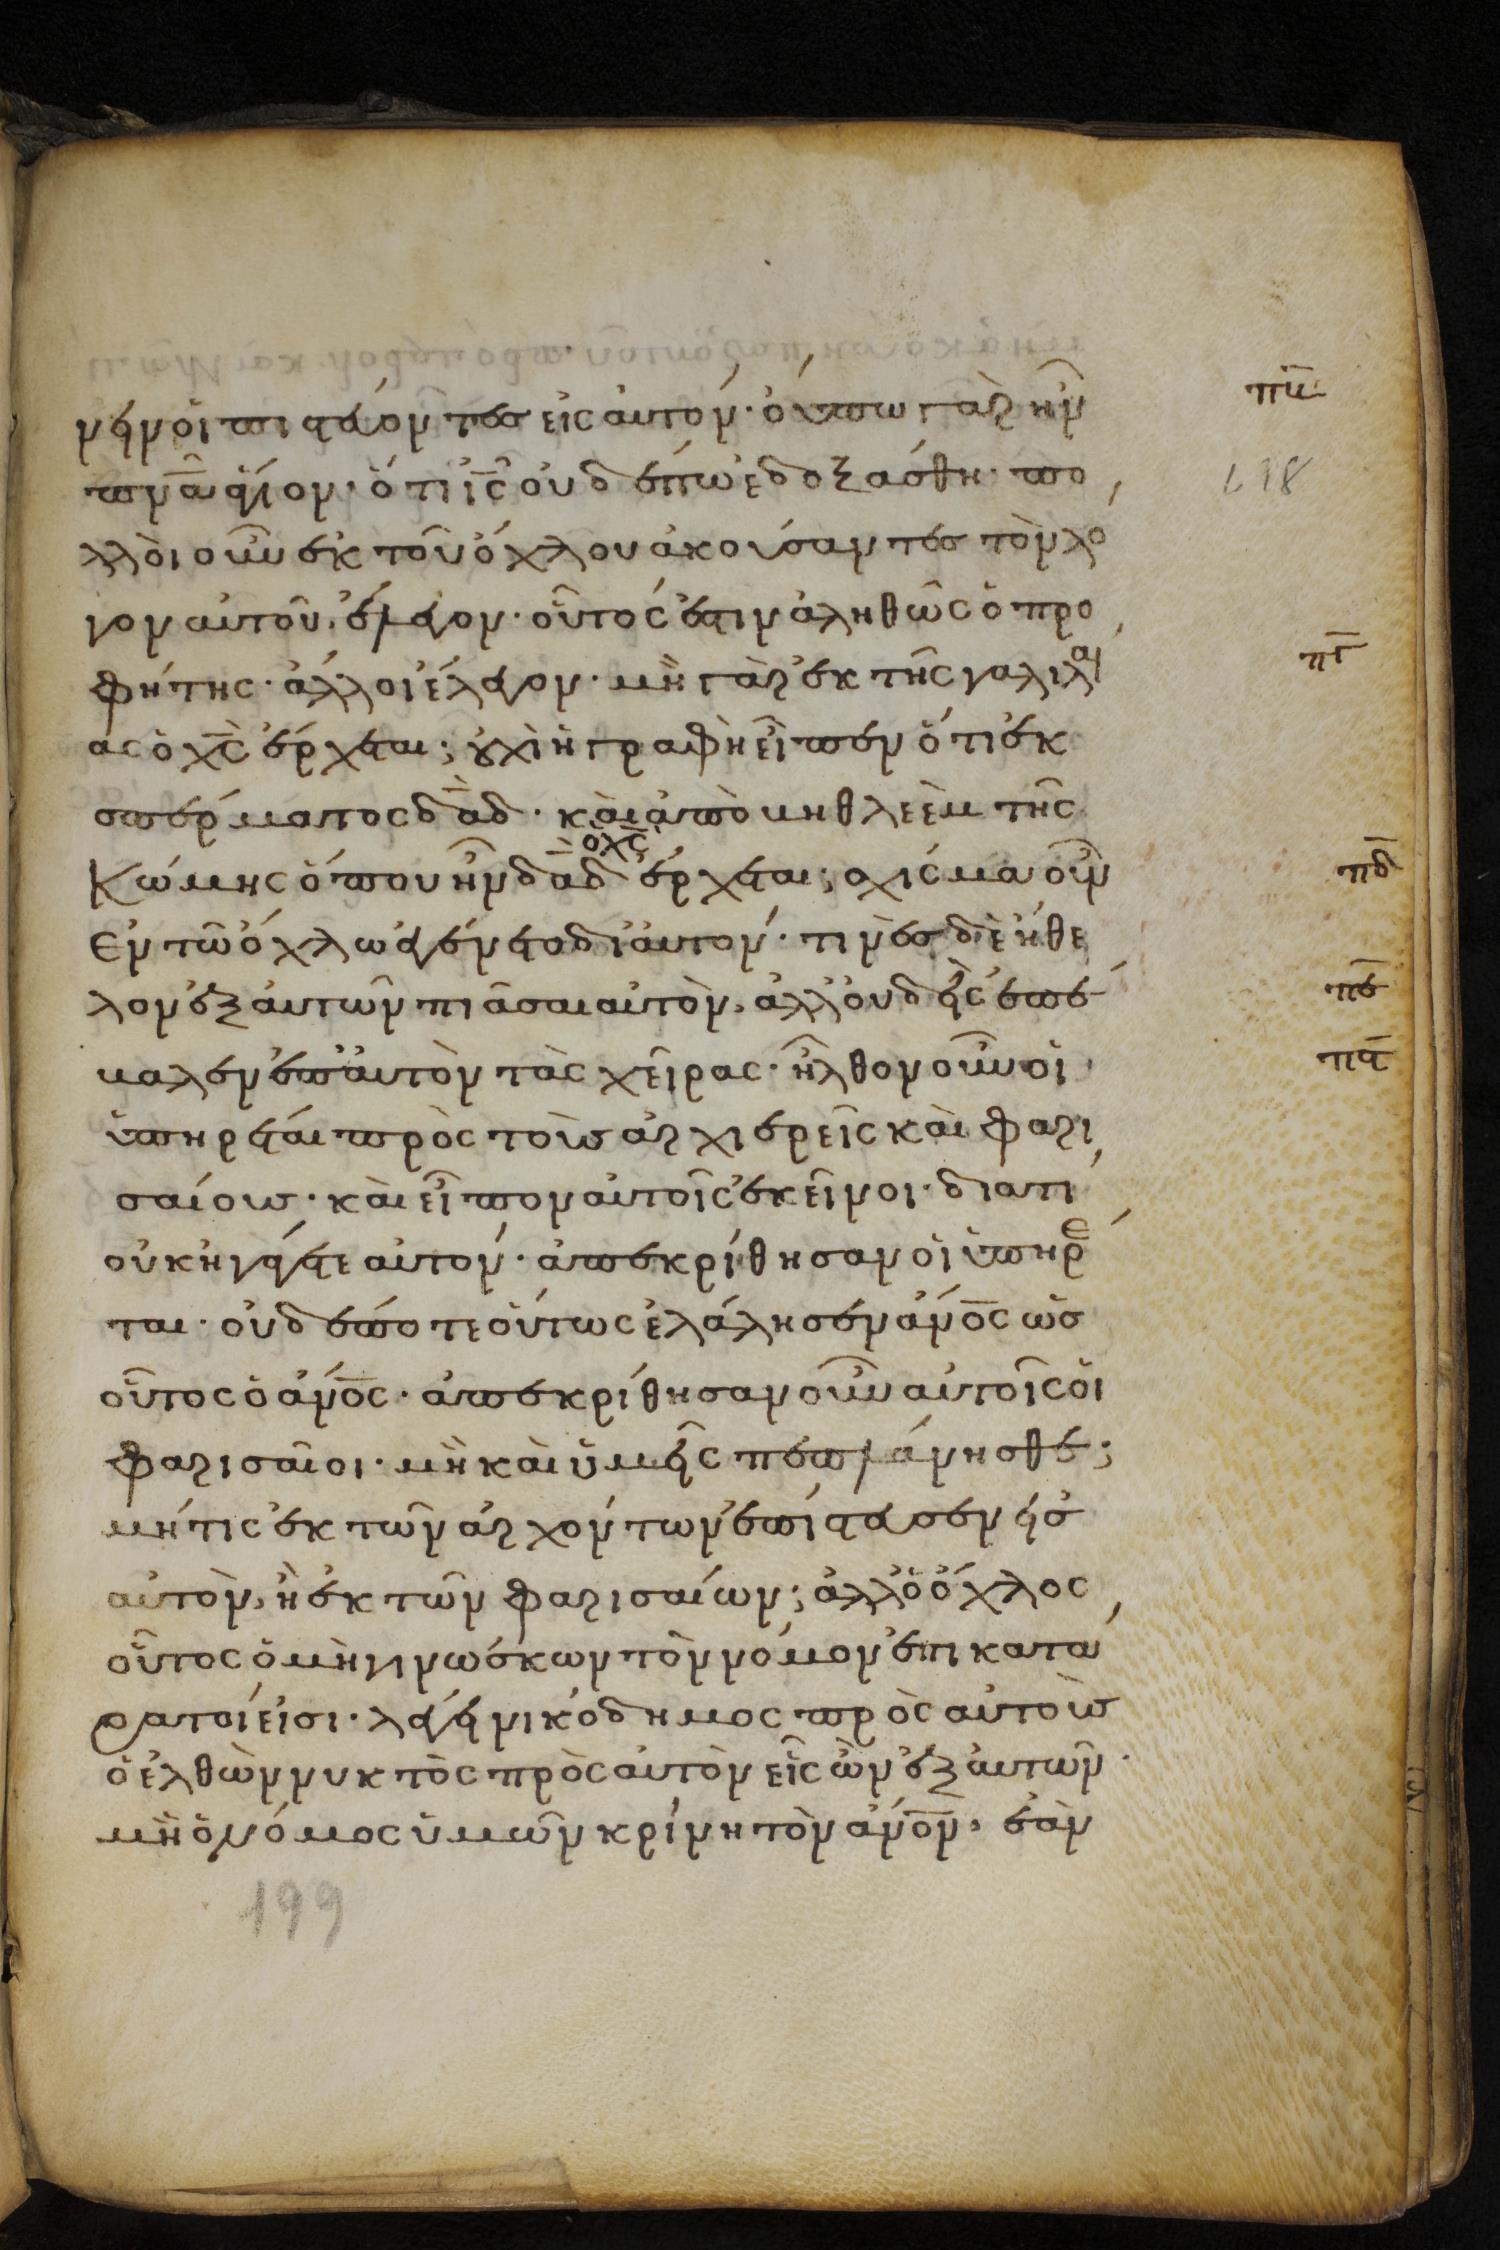 νειν οἱ πιστεύοντες εἰς αὐτόν· οὔπω γὰρ ἦν
πνα ἅγιον· ὅτι ις οὐδέπω ἐδοξάσθη· πο
λλοὶ οὖν ἐκ τοῦ ὄχλου ἀκούσαντες τὸν λό
γον αὐτοῦ, ἔλεγον· οὗτός ἐστιν ἀληθῶς ὁ προ
φήτης· ἄλλοι ἔλεγον· μὴ γὰρ ἐκ τῆς γαλιλαί
ας ὁ χς ἔρχεται; οὐχὶ ἡ γραφὴ εἶπεν ὅτι ἐκ
σπέρματος δαδ· καὶ ἀπὸ βηθλεὲμ τῆς
κώμης ὅπου ἦν δαδ ὁ χς ἔρχεται; σχίσμα οὖν
ἐν τῷ ὄχλω ἐγένετο δι' αὐτόν· τινὲς δὲ ἤθε
λον ἐξ αὐτῶν πιᾶσαι αὐτὸν, ἀλλ' οὐδεὶς ἐπέ
βαλεν ἐπ' αὐτὸν τὰς χεῖρας· ἦλθον οὖν οἱ
ὑπηρέται πρὸς τοὺς ἀρχιερεῖς καὶ φαρι
σαίους· καὶ εἶπον αὐτοῖς ἐκεῖνοι· διατί
οὐκ ἠγάγετε αὐτόν· ἀπεκρίθησαν οἱ ὑπηρέ
ται· οὐδέποτε οὕτως ἐλάλησεν ἀνος ὡς
οὗτος ὁ ἀνος· ἀπεκρίθησαν οὖν αὐτοῖς οἱ
φαρισαῖοι· μὴ καὶ ὑμεῖς πεπλάνησθε;
μήτις ἐκ τῶν ἀρχόντων ἐπίστευσεν εἰς
αὐτὸν, ἢ ἐκ τῶν φαρισαίων; ἀλλ' ὁ ὄχλος
οὗτος ὁ μὴ γινώσκων τὸν νόμον ἐπικατά
ρατοί εἰσι· λέγει νικόδημος πρὸς αὐτοὺς
ὁ ἐλθὼν νυκτὸς πρὸς αὐτὸν εἷς ὢν ἐξ αὐτῶν·
μὴ ὁ νόμος ὑμῶν κρίνη τὸν ἀνον, ἐὰν
πβ
198
πγ
πδ
πε
πϛ
199